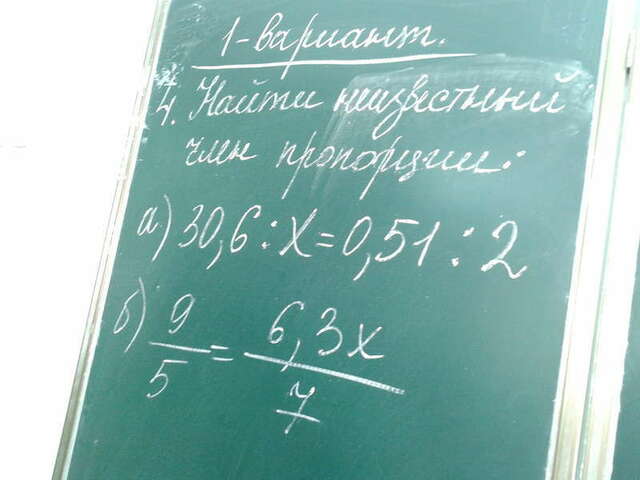 1-вариант.
4. Найти неизвестный
член пропорции:
а) 30,6 : x = 0,51 : 2
б) 9/5 = 6,3x/7